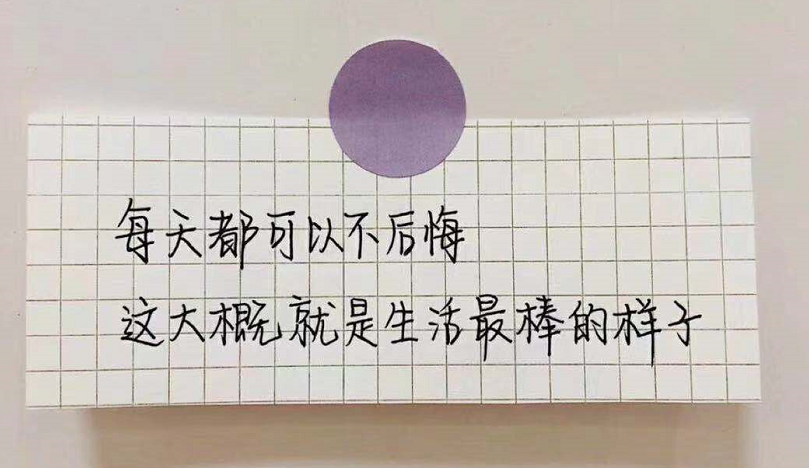 每天都可以不后悔
这大概就是生活最棒的样子